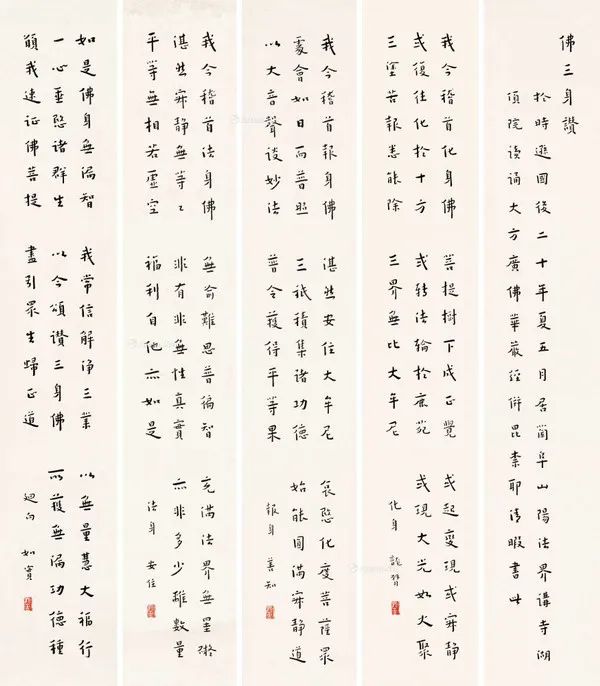 佛三身讚
於時遜國後二十年夏五月居阜山陽法界講寺湖
頂院讀誦大方廣佛華嚴經併毘柰耶清暇書此
我今稽首化身佛 菩提樹下成正覺 或起變現或寂靜
或復往化於十方 或轉法輪於鹿苑 或現大光如火聚
三塗苦報悉能除 三界無比大牟尼 化身 龍智
我今稽首報身佛 湛然安住大牟尼 哀愍化度菩薩眾
處會如日而普照 三祇積集諸功德 始能圓滿寂靜道
以大音聲談妙法 普令獲得平等果 報身 善知
我今稽首法身佛 無喻難思普徧智 充滿法界無罣礙
湛然寂靜無等々 非有非無性真實 亦非多少離數量
平等無相若虛空 福利自他亦如是 法身 安住
如是佛身無漏智 我常信解淨三業 以無量慧大福行
一心垂愍諸群生 以今頌讚三身佛 所獲無漏功德種
願我速证佛菩提 盡引眾生歸正道 迴向 如實